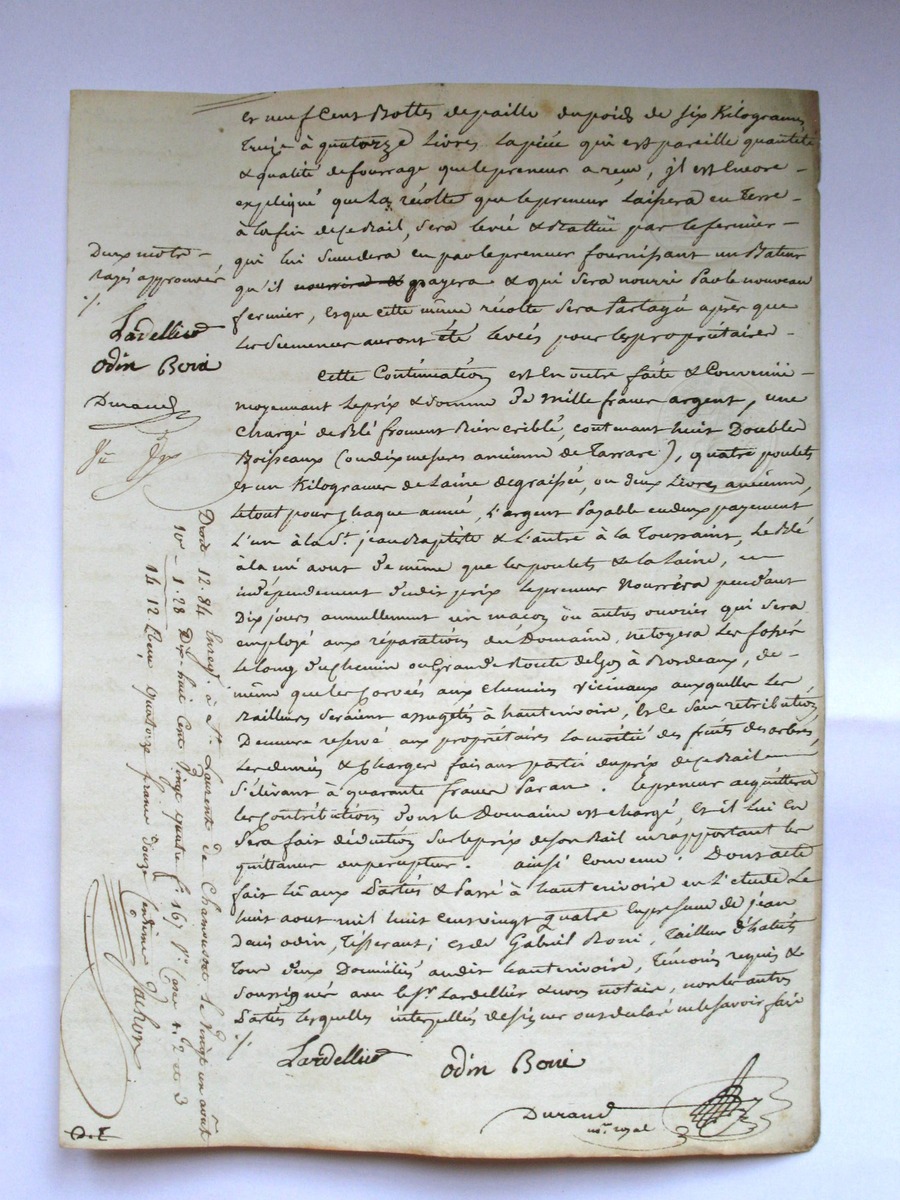 et neuf Cent Bottes de paille du poids de six Kilogrammes
treize à quatorze Livres la pièce qui est pareille quantité
& qualité de fourrage, que le preneur a reçu, il est Encore
expliqué que La récolte que le preneur Laissera en Terre
à la fin de Ce Bail, sera levée & Battüe par le fermier
qui lui Succdera en par le preneur fournissant un Bateur
qu'il nourrira & payera & qui sera nourri par le nouveau
fermier, et que cette même récolte sera Partagé après que
Les Semences auront été levées pour les propriétaires
Cette Continuation est En outre faite & Convenüe
moyennant Le prix & Somme De mille francs argent, une
Chargé de Blé froment Bien criblé, contenant huit Doubles
Boisseaux (ou dix mesures ancienne de Tarare), quatre poulets
et un Kilogramme de Laine degraissée, ou deux Livres ancienne,
Le tout pour Chaque année, L'argent Payable en deux payement
L'un à la St. jean Baptiste & L'autre à la Toussaint, Le Blé
à la mi aout De même que les poulets & la Laine, en
indépendement dudit prix Le preneur Nourrira pendant
Dix jours annuellement un maçon ou autres ouvrier qui sera
employé aux réparations du Domaine, netoyera Les fossés
Le long du Chemin ou Grande Route de à Bordeaux, de
même que les Corvées aux Chemins vicinaux auxquelles Les
Bailleurs seraient assugetés à hauterivoire, Et Ce sans retribution
Demeure reservé aux propriétaires La moitié des fruits des arbres,
Les denrées & Charges faisant partie du prix de Ce Bail
S'élevant à quarante francs Par an. Le preneur acquittera
les Contributions dont le Domaine est chargé, Et il lui En
Sera fait déduction sur le prix de son Bail en rapportant les
quittances du percepteur. ainsi Convenu. Dont acte
fait lü aux Parties & Passé à hauterivoire en L'etude Le
huit aout mil huit cent vingt quatre En présence de jean
Denis odin, Tisserant; et de Gabriel Boni, Tailleur D'habits
Tous deux Domiciliés audit hauterivoire, Temoins requis &
Soussignés avec le Sr. Lardellier & nous notaire, non les autres
Parties lesquelles interpellées de signer ont déclaré ne le savoir faire
Lardellier
odin Boni
Durand
nre. royal
Deux mots
rayés approuvés
Lardellier
odin Boni
Durand
Droit 12.84 Enregt. à St. Laurent de Chamousset Le Vingt un août
10e 1.28 Dix-huit Cent Vingt quatre f° 167 Vo. Case 1, 2 et 3
14 12 Reçu quatorze francs Douze Centimes